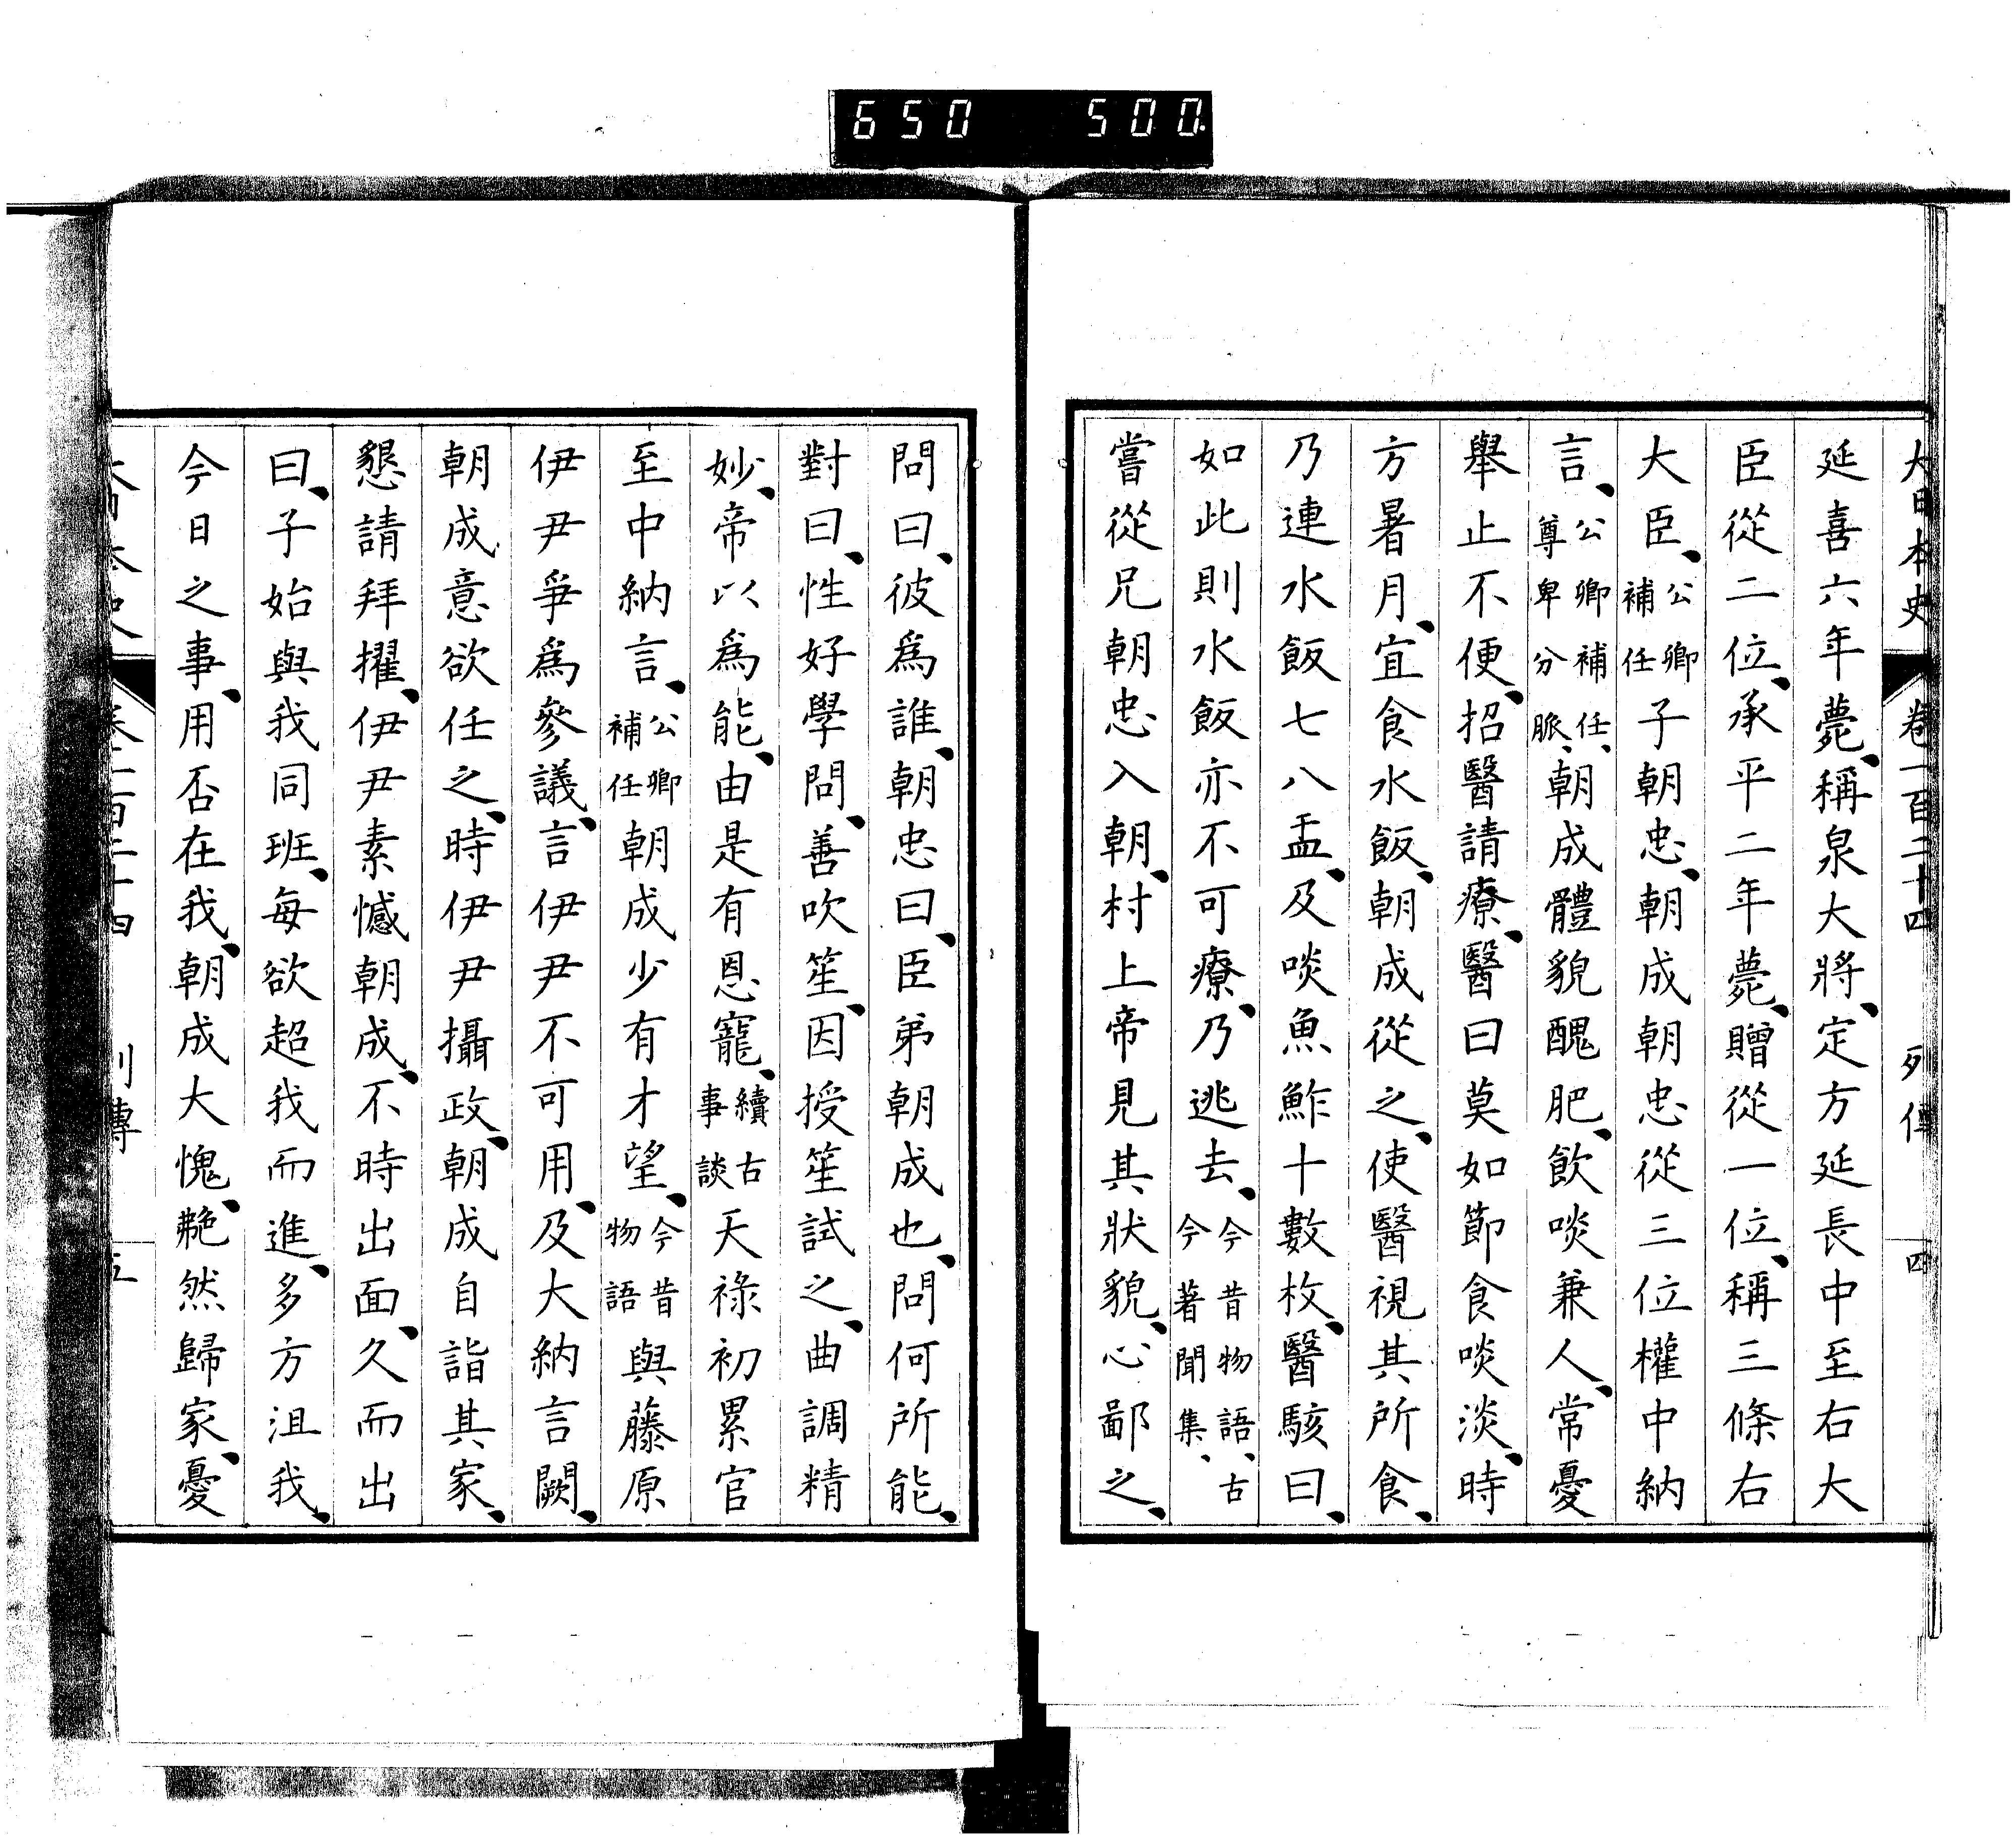 650 500.
大日本史 卷一百二十四 列傳 四
延喜六年薨、稱泉大將、定方延長中至右大
臣從二位、承平二年薨、贈從一位、稱三條右
大臣、公卿補任子朝忠、朝成朝忠從三位權中納
言、公卿補任、尊卑分脈、朝成體貌醜肥、飮啖兼人、常憂
擧止不便、招醫請療、醫曰莫如節食啖淡、時
方暑月、宜食水飯、朝成從之、使醫視其所食、
乃連水飯七八盂、及啖魚鮓十數枚、醫駭曰、
如此則水飯亦不可療、乃逃去、今昔物語、古今著聞集、
嘗從兄朝忠入朝、村上帝見其狀貌、心鄙之、
問曰、彼爲誰、朝忠曰、臣弟朝成也、問何所能、
對曰、性好學問、善吹笙、因授笙試之、曲調精
妙、帝以爲能、由是有恩寵、續古事談天祿初累官
至中納言、公卿補任朝成少有才望、今昔物語與藤原
伊尹爭爲參議、言伊尹不可用、及大納言闕、
朝成意欲任之、時伊尹攝政、朝成自詣其家、
懇請拜擢、伊尹素憾朝成、不時出面、久而出
曰、子始與我同班、每欲超我而進、多方沮我、
今日之事、用否在我、朝成大愧、赩然歸家、憂
大日本史 卷一百二十四 列傳 五